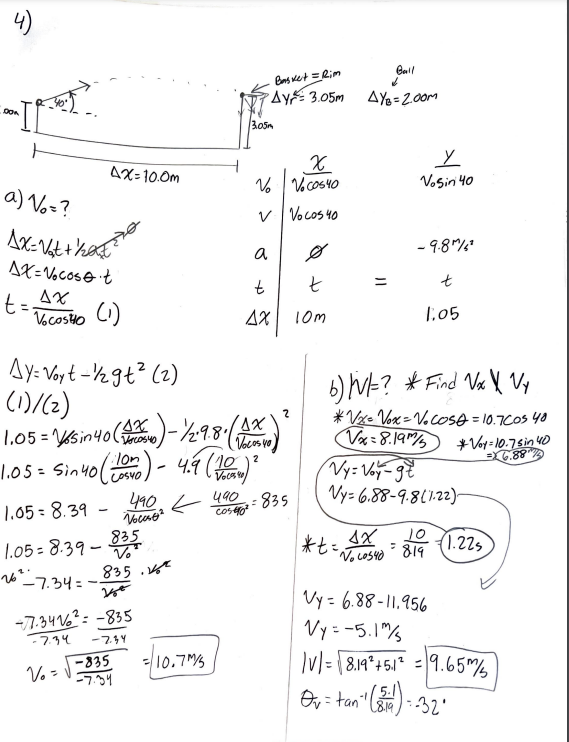 4)
Basket = Rim
Ball
40°
ΔYr = 3.05m
ΔY_B = 2.00m
.00m
3.05m
ΔX = 10.0m
X Y
V₀ V₀cos40 V₀sin40
V V₀cos40
a ∅ -9.8 m/s²
t t = t
ΔX 10m 1.05
a) V₀ = ?
ΔX = V₀t + ½at² ∅
ΔX = V₀cosθ·t
t = ΔX/V₀cos40 (1)
ΔY = V₀y t - ½gt² (2)
(1)/(2)
1.05 = V₀sin40(ΔX/V₀cos40) - ½·9.8·(ΔX/V₀cos40)²
1.05 = sin40(10m/cos40) - 4.9(10/V₀cos40)²
1.05 = 8.39 - 490/V₀cos40² ← 490/cos40² = 835
1.05 = 8.39 - 835/V₀²
V₀²· -7.34 = -835/V₀² · V₀²
-7.34V₀²/-7.34 = -835/-7.34
V₀ = √(-835/-7.34) = 10.7 m/s
b) |V| = ? * Find Vx \ Vy
* Vx = V₀x = V₀cosθ = 10.7cos40
Vx = 8.19 m/s
* V₀y = 10.7sin40
= 6.88 m/s
Vy = V₀y - gt
Vy = 6.88 - 9.8(1.22)
* t = ΔX/V₀cos40 = 10/8.19 = 1.22s
Vy = 6.88 - 11.956
Vy = -5.1 m/s
|V| = √8.19² + 5.1² = 9.65 m/s
θv = tan⁻¹(5.1/8.19) = -32°